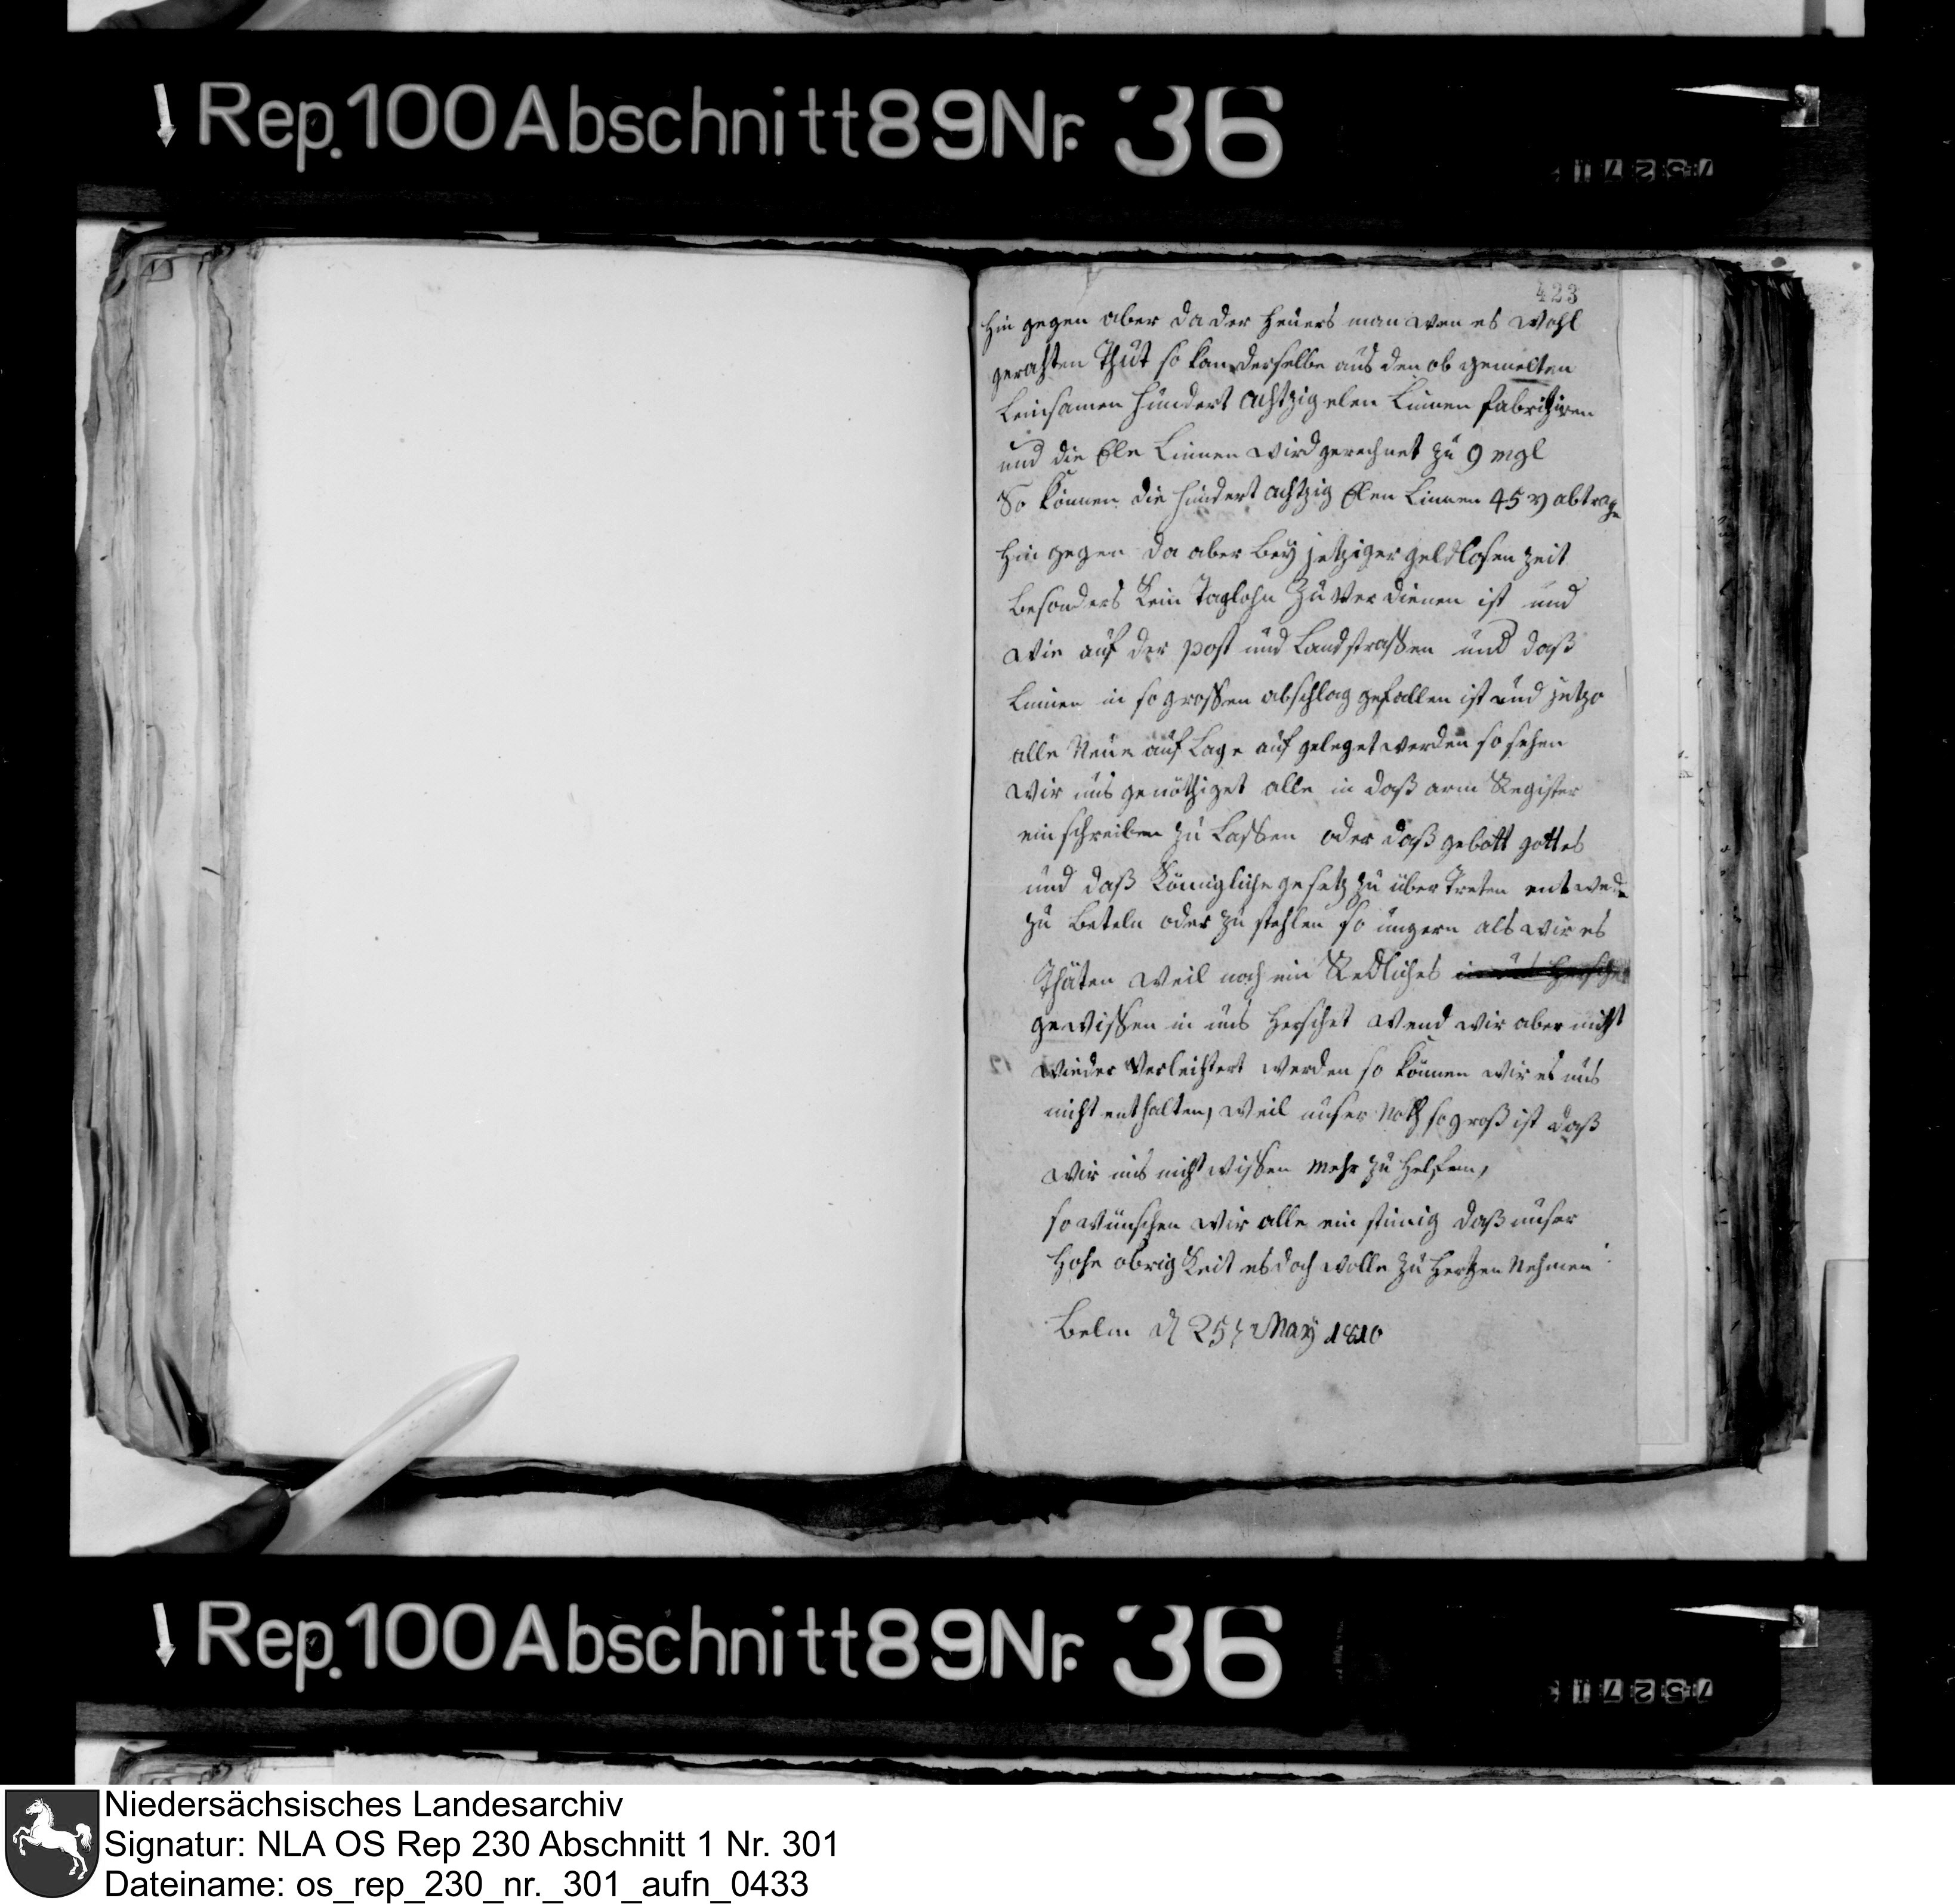 Rep. 100 Abschnitt 89 Nr. 36
423
Hin gegen aber da der Heuers man wen es wohl
gerahten Thut so kan derselbe aus den ob gemelten
Leinsamen hundert achtzig elen Linnen fabriziren
und die Ele Linnen wird gerechnet zu 9 mgl
So können die hundert achtzig Elen Linnen 45 abtragen
Hin gegen da aber bey jetziger geldlosen zeit
besonders kein Taglohn zu Verdienen ist und
wie auf der post und Landstrassen und daß
Linnen in so grossen abschlag gefallen ist und jetzo
alle Neue auf Lage auf geleget werden so sehen
wir uns genöthiget alle in daß arm Register
ein schreiben zu Lassen oder daß gebott gottes
und daß Königliche gesetz zu über Treten entweder
zu Beteln oder zu stehlen so ungern als wir es
Thäten weil noch ein Redliches in uns Hersche
gewissen in uns Herschet wend wir aber nicht
wieder Verleichtert werden so können wir es uns
nicht enthalten, weil unser Noth so groß ist daß
wir uns nicht wissen mehr zu Helfen,
so wünschen wir alle ein stimig daß unser
Hohe obrig Keit es doch wolle zu Hertzen Nehmen
Belm d 25t May 1810
Rep. 100 Abschnitt 89 Nr. 36
Niedersächsisches Landesarchiv
Signatur: NLA OS Rep 230 Abschnitt 1 Nr. 301
Dateiname: os_rep_230_nr._301_aufn_0433